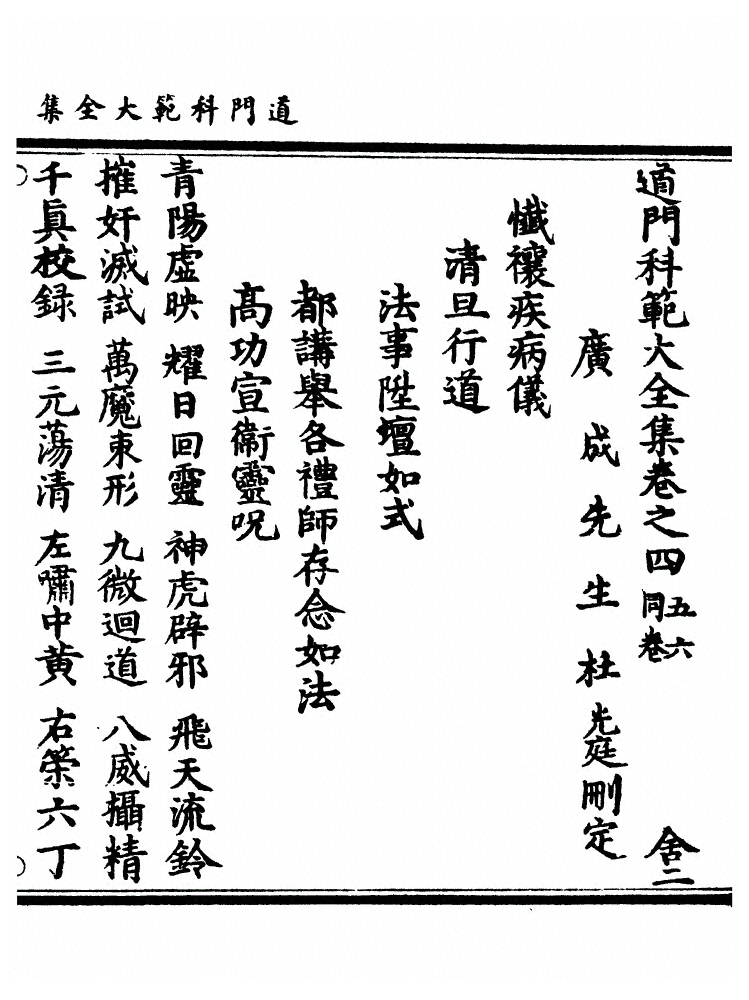 道門科範大全集
道門科範大全集卷之四 五六同卷 舍二
廣成先生杜光庭刪定
懺禳疾病儀
清旦行道
法事陞壇如式
都講舉各禮師存念如法
高功宣衛靈呪
青陽虛映 耀日回靈 神虎辟邪 飛天流鈴
摧奸滅試 萬魔束形 九微迴道 八威攝精
千真校録 三元蕩清 左嘯中黃 右策六丁